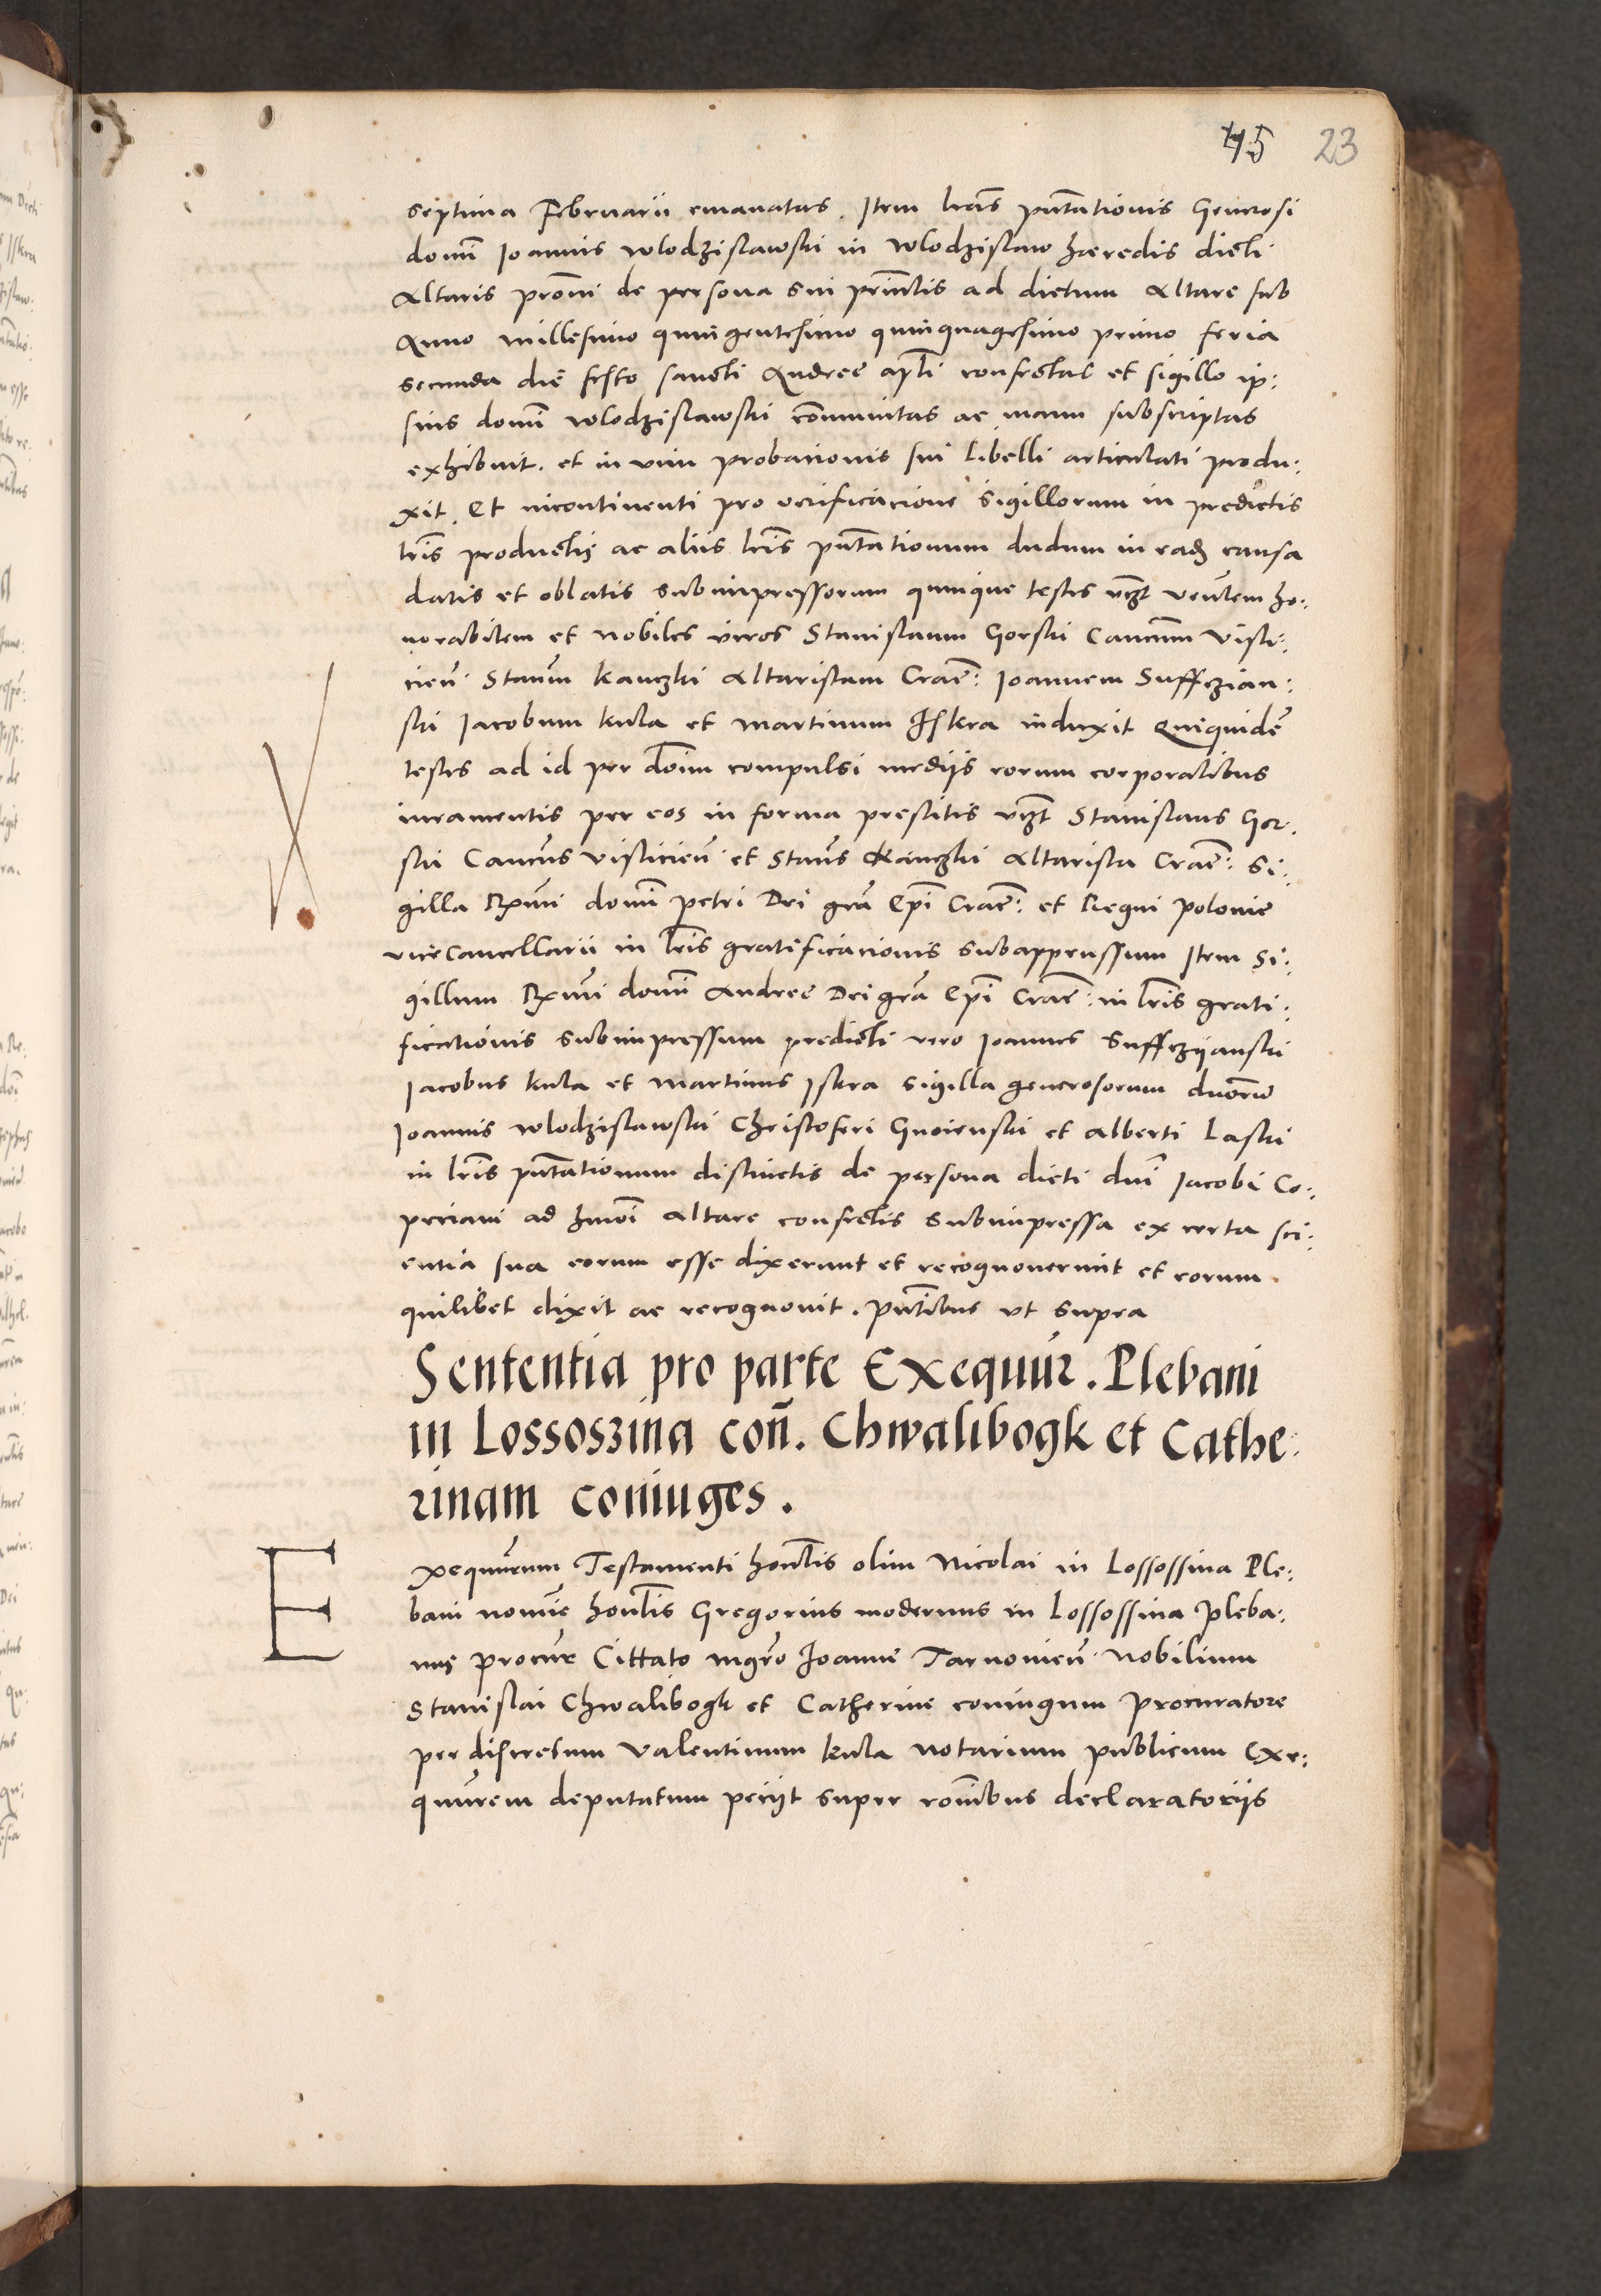 45 23
septima Februarii emanatas. Item lrãs pñtationis Generosi
domi Ioannis wlodzislawski in wlodzislaw hæredis dicti
Altaris pronĩ de persona sui prĩncĩlis ad dictum Altare sub
Anno millesimo quingentesimo quinquagesimo primo feria
secunda die festo sancti Andree apłi confectas et sigillo ip:
sius domi wlodzislawski communitas ac manu subscriptas
exhibuit. et in vim probacionis sui libelli articulati produ:
xit. Et incontinenti pro verificacione sigillorum in predictis
lrĩs productis ac aliis lrĩs pñtationum dudum in eadẽ causa
datis et oblatis subimpressorum quinque testes vĩzt veñlem ho:
norabilem et nobiles viros Stanislaum Gorski Canñcum visli:
cieñ Stañm kanczki Altaristam Cracẽ: Ioannem Suffczian:
ski Iacobum kula et martinum Iskra induxit Quiquidẽ
testes ad id per doĩm compulsi mediis eorum corporalibus
iuramentis per eos in forma prestitis vĩzt Stanislaus Gor.
ski Canñcus visliciẽn et Stañs kanczki Altarista Cracẽ: Si:
gilla Rxmi domĩ petri Dei grã Epĩ Cracẽ: et Regni polonie
vicecancellarii in lrĩs gratificacionis subappressum Item Si:
gillum Rxmi domĩ Andree Dei grã Epĩ Cracẽ: in lrĩs grati:
ficationis subimpressum predicti vero Ioannes Suffczijanski
Iacobus kula et martinus Iskra sigilla generosorum dnorũ
Ioannis wlodzislawski Christoferi Gnoienski et alberti Laski
in lrĩs pñtationum distinctis de persona dicti dnĩ Iacobi Co:
preciani ad hmoĩ altare confectis subimpressa ex certa sci:
entia sua eorum esse dixerunt et recognoverunt et eorum
quilibet dixit ac recognovit. pñtibus ut supra
Sententia pro parte Exequur̃. Plebani
in Lossoszina coñ. Chwalibogk et Cathe:
rinam coniuges.
Exequur̃um Testamenti hoñlis olim Nicolai in Lossossina Ple:
bani nomĩe hoñlis Gregorius modernus in Lossossina pleba:
nus procur̃ Cittato mgr̃o Ioanne Tarnovieñ Nobilium
Stanislai Chwalibogk et Catherine coniugum procuratore
per discretum valentinum kula notarium publicum Exe:
quur̃em deputatum periit super roñibus declaratoriis